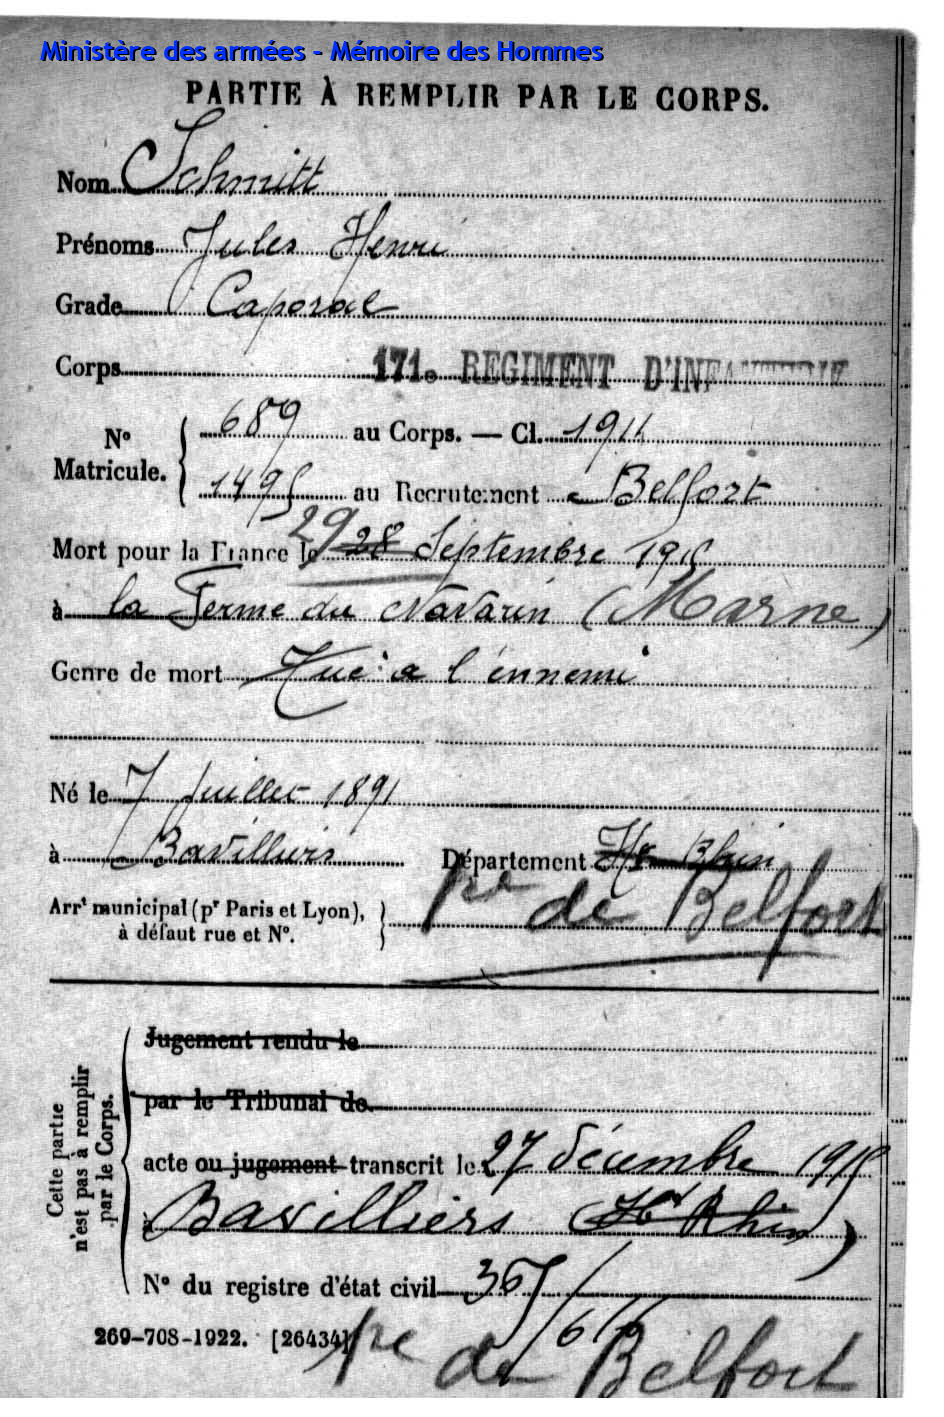 Ministère des armées - Mémoire des Hommes
PARTIE À REMPLIR PAR LE CORPS.
Nom Schmitt
Prénoms Jules Henri
Grade Caporal
Corps 171e REGIMENT D'INFANTERIE
N° Matricule. { 689 au Corps. — Cl. 1911
1495 au Recrutement Belfort
Mort pour la France le 29 28 Septembre 1915
à la Ferme du Navarin (Marne)
Genre de mort Tué à l'ennemi
Né le 7 Juillet 1891
à Bavilliers Département Ht Rhin
Arrt municipal (pr Paris et Lyon), à défaut rue et N°. } re de Belfort
Jugement rendu le
par le Tribunal de
acte ou jugement transcrit le 27 décembre 1915
à Bavilliers (Ht Rhin)
N° du registre d'état civil
Cette partie n'est pas à remplir par le Corps.
269-708-1922. [26434]
re de Belfort